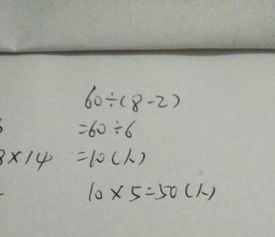 60÷(8-2)
=60÷6
8×14
=10(人)
10×5=50(人)